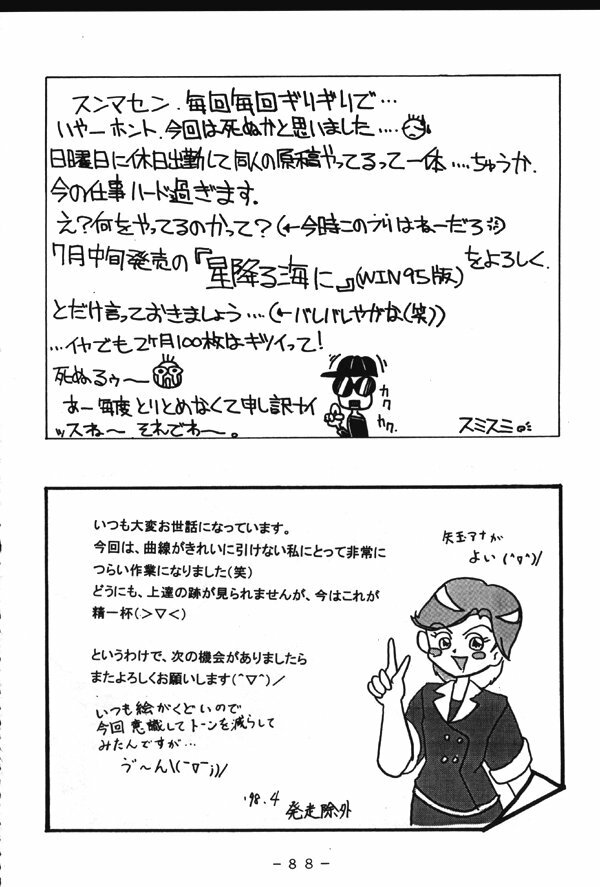 スンマセン、毎回毎回ギリギリで…
いやーホント、今回は死ぬかと思いました….
日曜日に休日出勤して同人の原稿やってるって一体….ちゅうか、
今の仕事ハード過ぎます。
え?何をやってるのかって?(←今時このフリはねーだろ)
7月中旬発売の『星降る海に』(WIN95版)をよろしく
とだけ言っておきましょう…(←バレバレやがな(笑))
…イヤでも2ヶ月100枚はキツイって!
死ぬるゥ〜
カク
カク
あー毎度とりとめなくて申し訳ナイ
ッスね〜 それでわ〜。
スミスミ
いつも大変お世話になっています。
今回は、曲線がきれいに引けない私にとって非常に
つらい作業になりました(笑)
どうにも、上達の跡が見られませんが、今はこれが
精一杯(>▽<)
というわけで、次の機会がありましたら
またよろしくお願いします(^▽^)/
いつも絵がくどいので
今回意識してトーンを減らして
みたんですが…
ゔ〜ん\(ー▽ー;)/
'98.4
発走除外
矢玉アナが
よい(^▽^)/
-88-